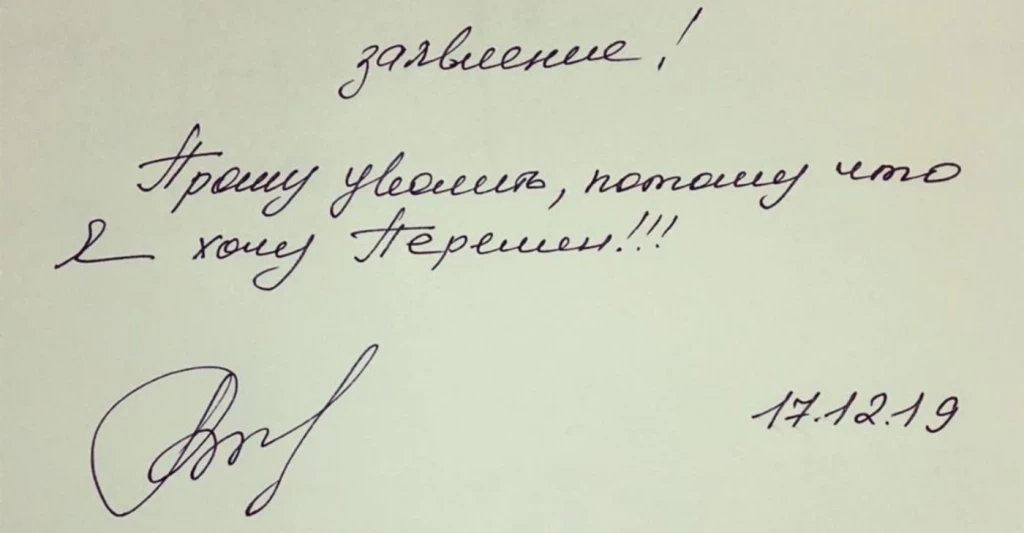 заявление!
Прошу уволить, потому что
Я хочу Перемен!!!
17.12.19